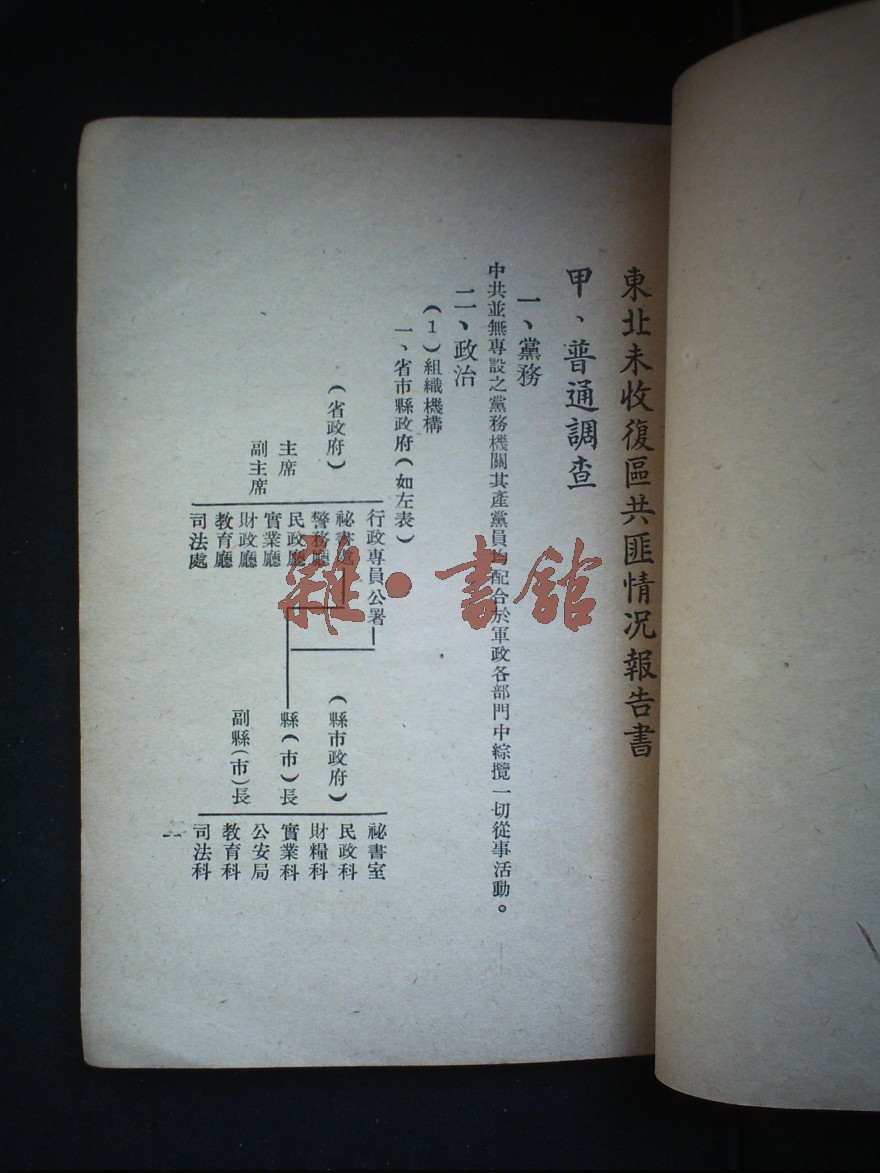 東北未收復區共匪情况報告書
甲、普通調查
一、黨務
中共並無專設之黨務機關其產黨員均配合於軍政各部門中綜攬一切從事活動。
二、政治
(1)組織機構
一、省市縣政府(如左表)
(省政府)
主席
副主席
行政專員公署
祕書處
警務廳
民政廳
實業廳
財政廳
教育廳
司法處
(縣市政府)
縣(市)長
副縣(市)長
祕書室
民政科
財糧科
實業科
公安局
教育科
司法科
雜·書館